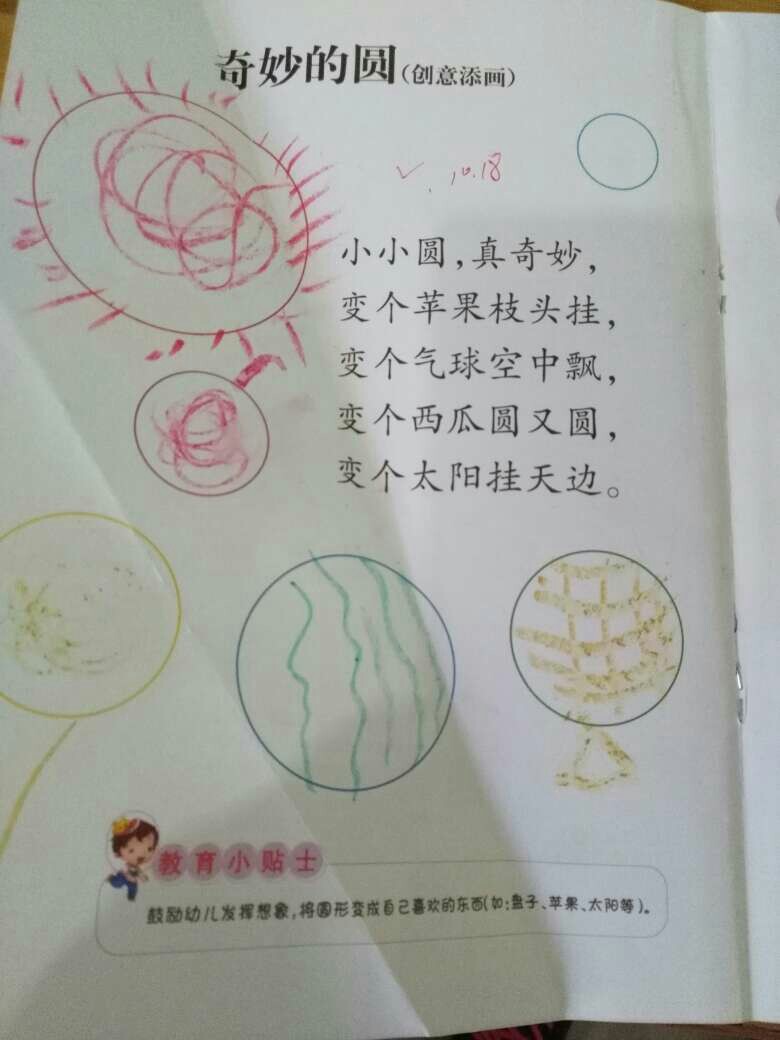 奇妙的圆(创意添画)
10.18
小小圆,真奇妙,
变个苹果枝头挂,
变个气球空中飘,
变个西瓜圆又圆,
变个太阳挂天边。
教育小贴士
鼓励幼儿发挥想象,将圆形变成自己喜欢的东西(如:盘子、苹果、太阳等)。